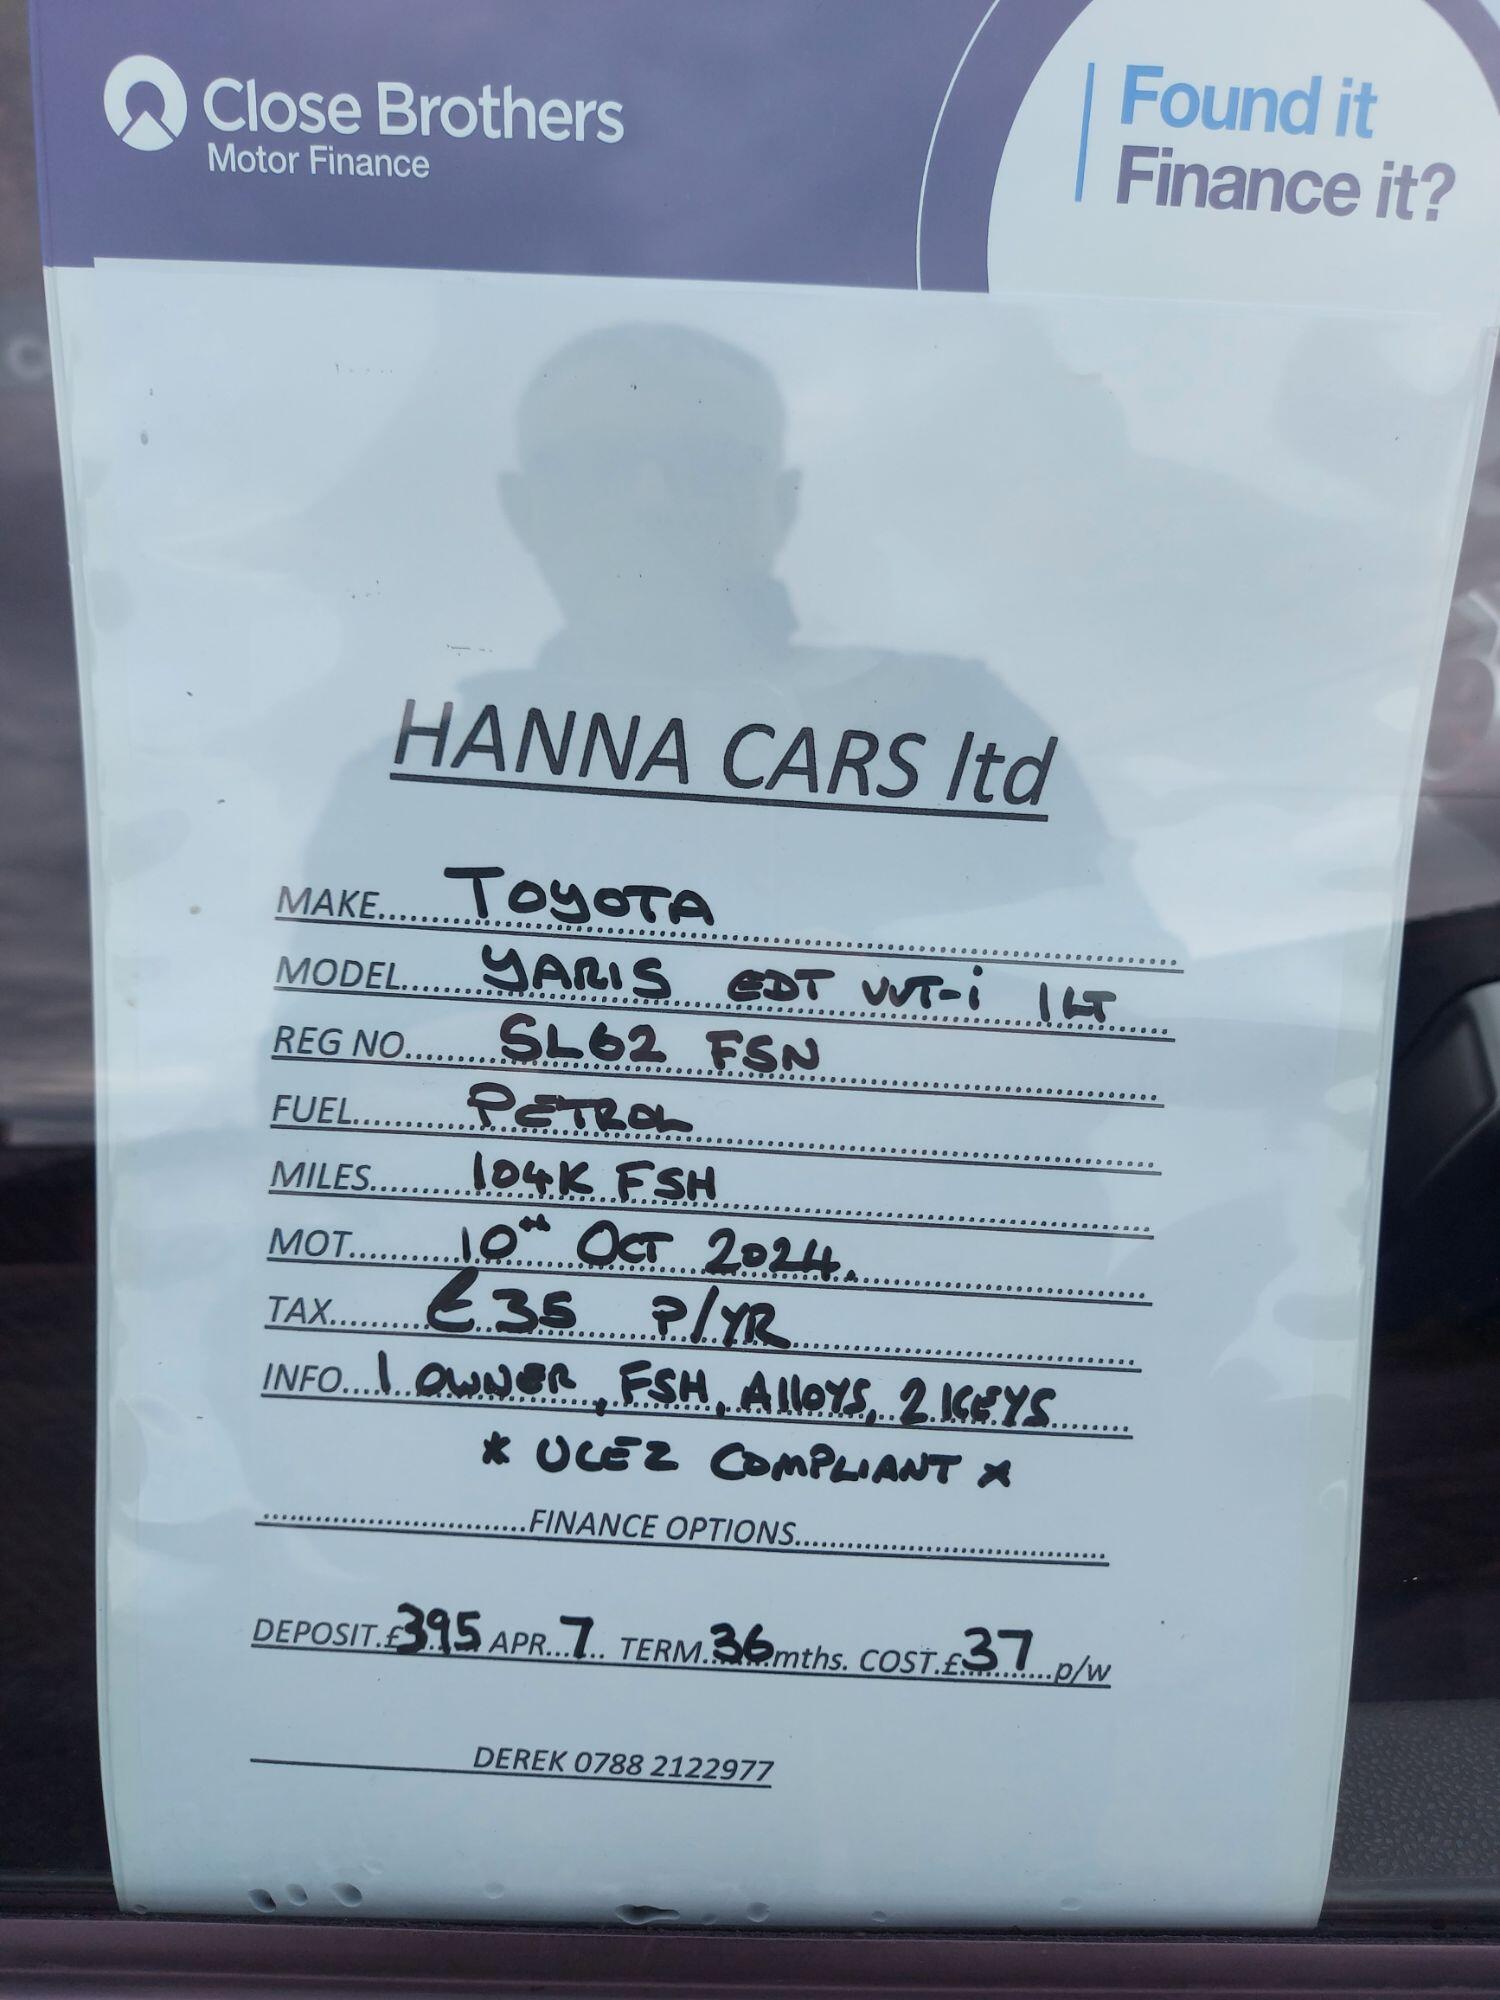 Close Brothers
Motor Finance
Found it
Finance it?
HANNA CARS ltd
MAKE.....TOYOTA
MODEL.....YARIS EDT VVT-i 1LT
REG NO.....SL62 FSN
FUEL.....PETROL
MILES.....104K FSH
MOT.....10th OCT 2024.
TAX.....£35 P/YR
INFO....1 OWNER, FSH, AlloYS, 2 KEYS
* ULEZ COMPLIANT *
.....FINANCE OPTIONS.....
DEPOSIT.£395 APR...7.. TERM.36mths. COST.£37...p/w
DEREK 0788 2122977